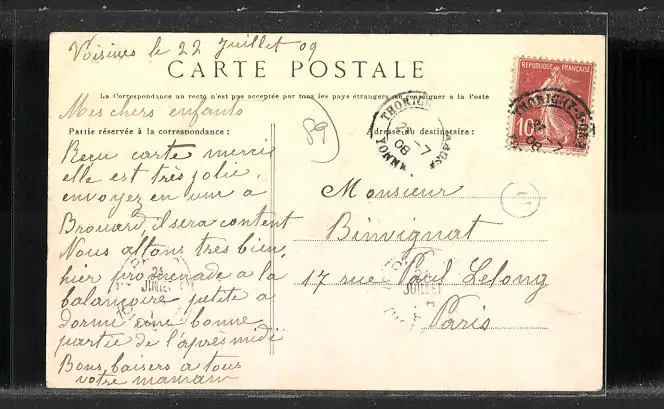 Voisines le 22 Juillet 09
CARTE POSTALE
La Correspondance au recto n'est pas acceptée par tous les pays étrangers se renseigner à la Poste
Mes chers enfants
Partie réservée à la correspondance :
Adresse du destinataire :
Reçu carte merci
elle est très jolie,
envoyez en une a
Brouard, il sera content
Nous allons très bien,
hier promenade a la
balançoire petite a
dormi une bonne
partie de l'après midi
Bons baisers a tous
votre maman
Monsieur
Binvignat
17 rue Paul Lelong
Paris
89
REPUBLIQUE FRANÇAISE
10
THORIGNY
YONNE
JUILLET
JUILLET